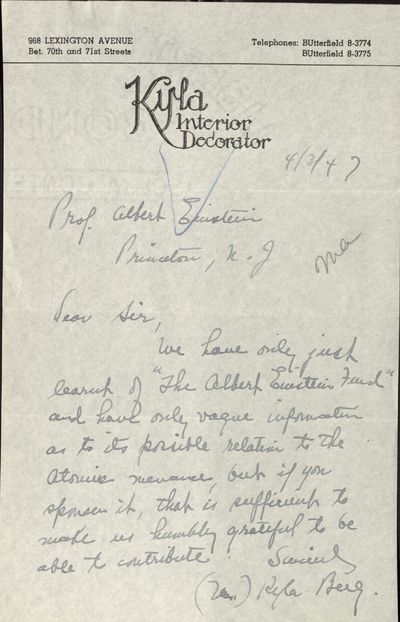 968 LEXINGTON AVENUE
Bet. 70th and 71st Streets
Telephones: BUtterfield 8-3774
BUtterfield 8-3775
Kyla
Interior
Decorator
4/3/47
Prof. Albert Einstein
Princeton, N. J
Dear Sir,
We have only just
learnt of "The Albert Einstein Fund"
and have only vague information
as to its possible relation to the
Atomic menance, but if you
sponsor it, that is sufficient to
make us humbly grateful to be
able to contribute. Sincerely
Kyla Berg.